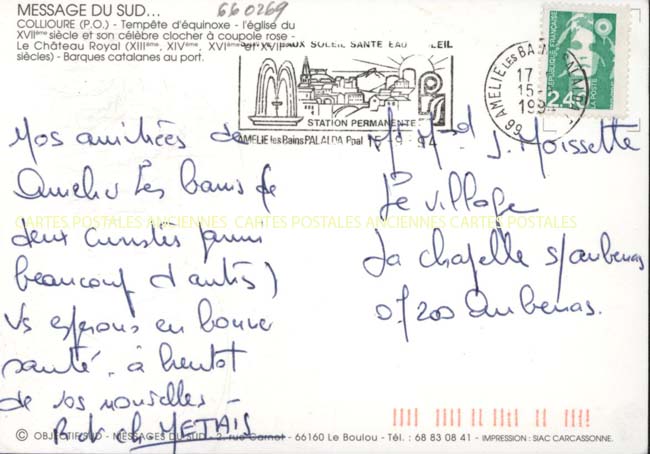 MESSAGE DU SUD...
660269
COLLIOURE (P.O.) - Tempête d'équinoxe - l'église du
XVIIème siècle et son célèbre clocher à coupole rose -
Le Château Royal (XIIIème, XIVème, XVIème et XVIIème
siècles) - Barques catalanes au port.
EAUX SOLEIL SANTE EAU SOLEIL
STATION PERMANENTE
AMELIE les Bains PALALDA Ppal 15-9-94
66 AMELIE LES BAINS
17
15-
199
REPUBLIQUE FRANÇAISE
LA POSTE
2,40
Nos amitiées de
Amelie Les bains de
deux curistes (parmi
beaucoup d'autres)
Vs espérons en bonne
santé, à bientot
de vos nouvelles -
R et ch METAIS
M. Md J. Moissette
Le village
La chapelle s/aubenas
07200 Aubenas.
CARTES POSTALES ANCIENNES CARTES POSTALES ANCIENNES CARTES POSTALES
© OBJECTIF SUD - MESSAGES DU SUD - 2, rue Carnot - 66160 Le Boulou - Tél. : 68 83 08 41 - IMPRESSION : SIAC CARCASSONNE.